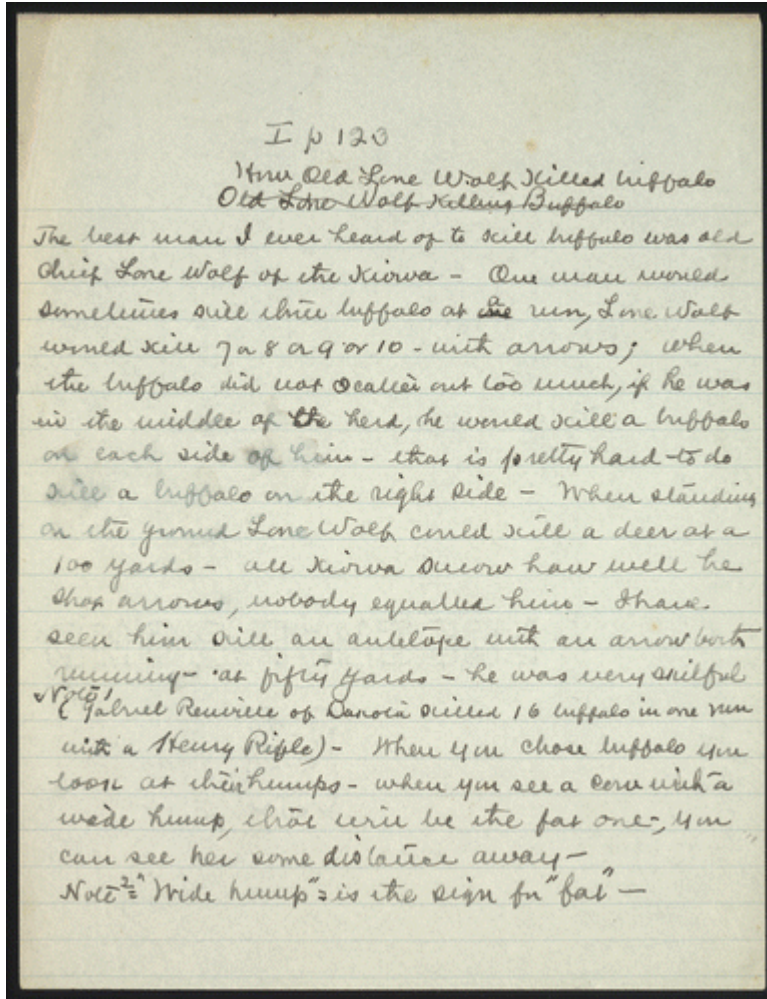 I p 123
How Old Lone Wolf Killed buffalo
Old Lone Wolf Killing Buffalo
The best man I ever heard of to kill buffalo was old
Chief Lone Wolf of the Kiowa - One man would
sometimes kill three buffalo at one run, Lone Wolf
would kill 7 or 8 or 9 or 10 - with arrows; when
the buffalo did not scatter out too much, if he was
in the middle of the herd, he would kill a buffalo
on each side of him - that is pretty hard to do
kill a buffalo on the right side - When standing
on the ground Lone Wolf could kill a deer at a
100 yards - all Kiowa know how well he
shot arrows, nobody equalled him - I have
seen him kill an antelope with an arrow both
running - at fifty yards - he was very skilful
Note 1
( Gabriel Renville of Dakota killed 16 buffalo in one run
with a Henry Rifle) - When you chose buffalo you
look at their humps - when you see a cow with a
wide hump, that will be the fat one -, you
can see her some distance away -
Note 2 = "Wide hump" = is the sign for "fat" -